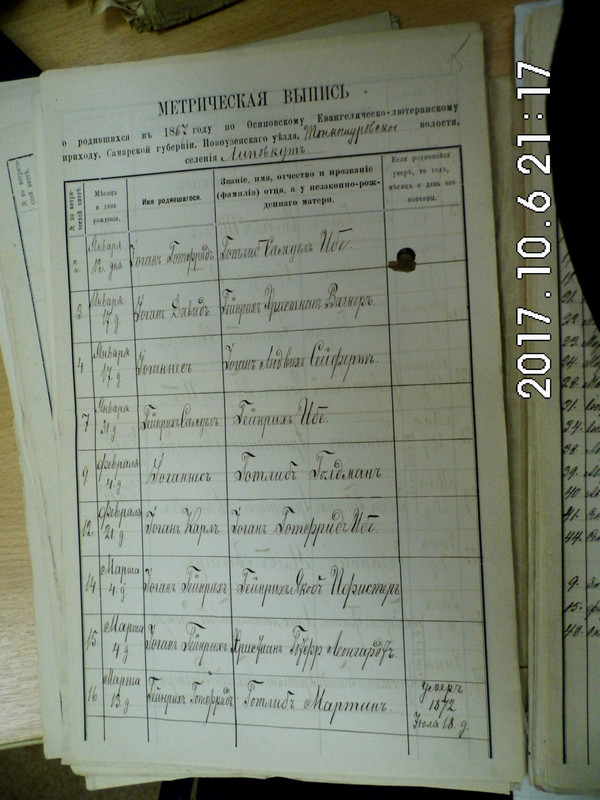 МЕТРИЧЕСКАЯ ВЫПИСЬ
о родившихся въ 1867 году по Осиповскому Евангелическо-лютеранскому
приходу, Самарской губерніи, Новоузенскаго уѣзда, волости,
селенія Липовкутъ
№ по метрической книгѣ.
Мѣсяцъ и день рожденія.
Имя родившагося.
Званіе, имя, отчество и прозваніе (фамилія) отца, а у незаконно-рожденнаго матери.
Если родившійся умеръ, то годъ, мѣсяцъ и день его кончины.
2 Января 12 дня Іоганъ Готфридъ Готлибъ Самуель Ибе.
3 Января 17 д Іоганъ Давидъ Гейнрихъ Христіанъ Вагнеръ.
4 Января 17 д Іоганнесъ Іоганъ Людвихъ Сейфертъ.
7 Января 31 д Гейнрихъ Самуель Гейнрихъ Ибе.
9 Февраля 4 д Іоганнесъ Готлибъ Голдманъ
12 Февраля 21 д Іоганъ Карлъ Іоганъ Готфридъ Ибе
14 Марта 4 д Іоганъ Гейнрихъ Гейнрихъ Якобъ
15 Марта 4 д Іоганъ Гейнрихъ Христіанъ Леонгардтъ
16 Марта 13 д Гейнрихъ Готфридъ Готлибъ Мартинъ.
Умеръ
1872
Іюля 18 д.
2017.10.6 21:17